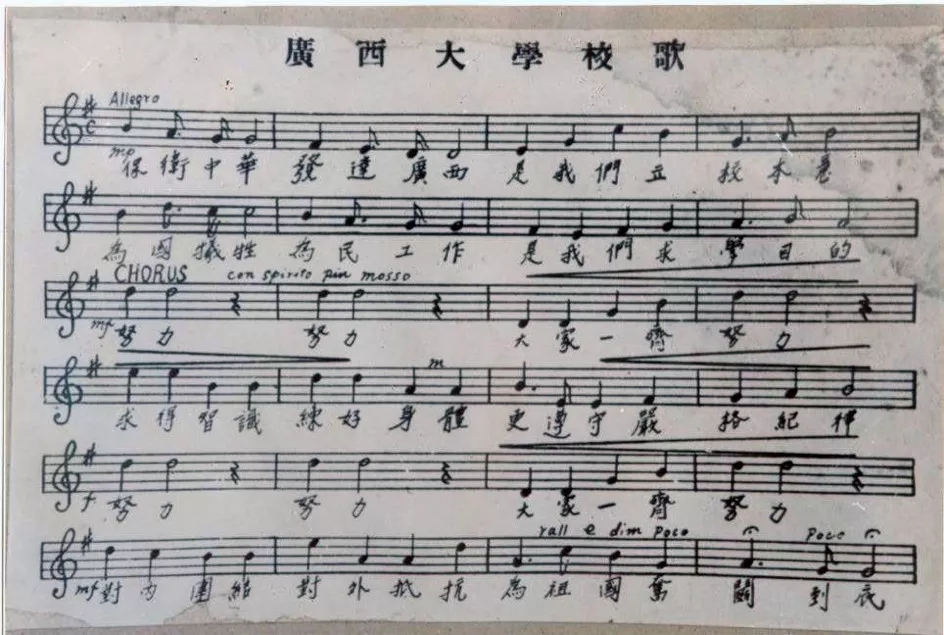 廣西大學校歌
Allegro
mp
保衛中華 發達廣西 是我們立 校本意
為國犧牲 為民工作 是我們求 學目的
CHORUS con spirito piu mosso
mf
努力 努力 大家一齊 努力
m
求得智識 練好身體 更遵守嚴 格紀律
f
努力 努力 大家一齊 努力
rall e dim poco poco
mf
對內團結 對外抵抗 為祖國奮 鬪到底